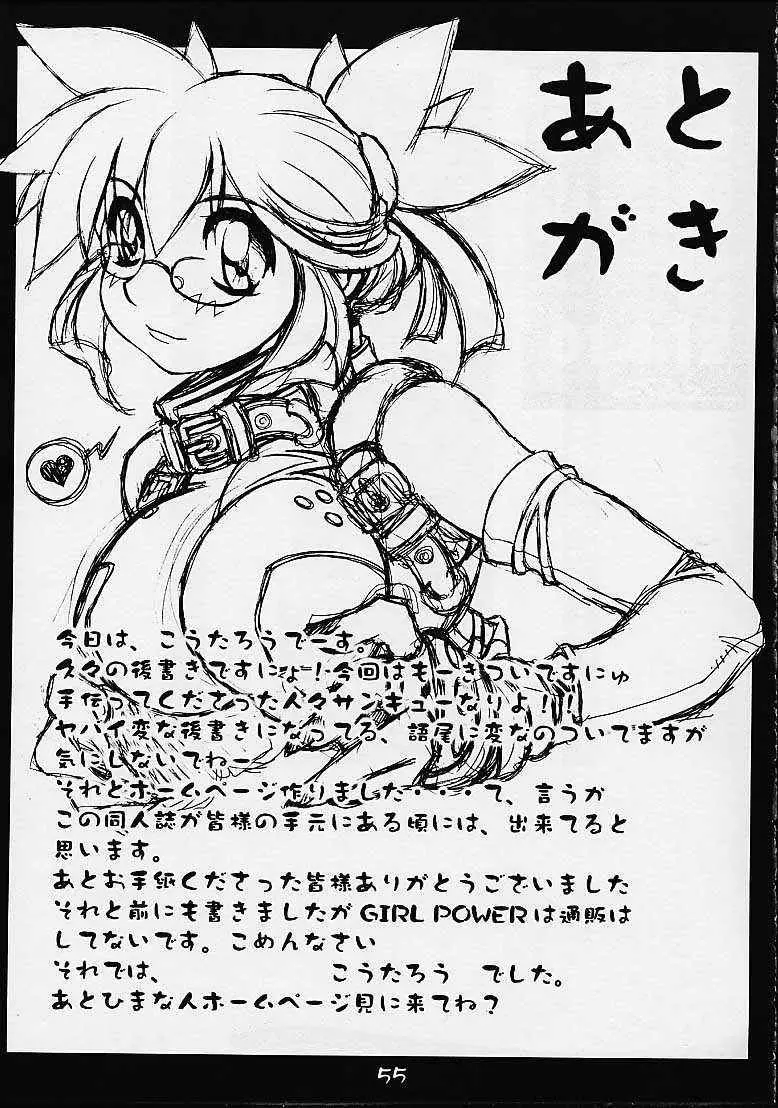 あとがき
今日は、こうたろうでーす。
久々の後書きですにょ!今回はもーきついですにゅ
手伝ってくださった人々サンキューなりよ!!
ヤバイ変な後書きになってる、語尾に変なのついてますが
気にしないでねー
それとホームページ作りました・・・て、言うか
この同人誌が皆様の手元にある頃には、出来てると
思います。
あとお手紙くださった皆様ありがとうございました
それと前にも書きましたがGIRL POWERは通販は
してないです。ごめんなさい
それでは、 こうたろう でした。
あとひまな人ホームページ見に来てね?
55